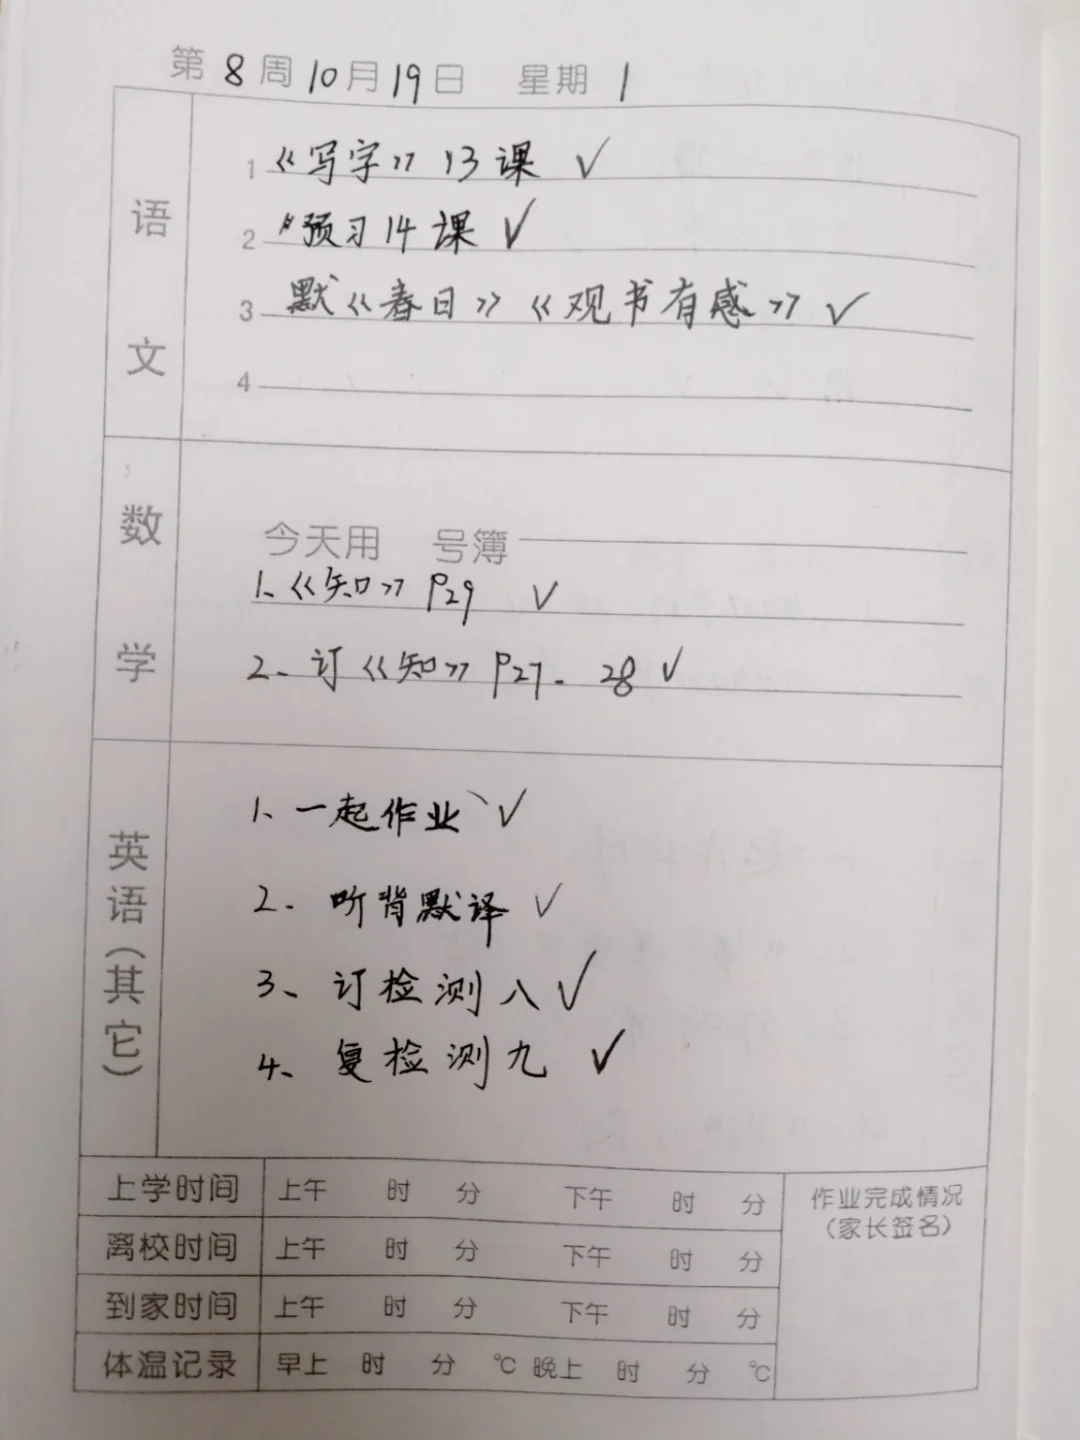 第8周10月19日 星期1
语文
1 《写字》13课 ✓
2 预习14课 ✓
3 默《春日》《观书有感》 ✓
4
数学
今天用 号簿
1、《知》P29 ✓
2、订《知》P27、28 ✓
英语(其它)
1、一起作业 ✓
2、听背默译 ✓
3、订检测八 ✓
4、复检测九 ✓
上学时间 上午 时 分 下午 时 分
离校时间 上午 时 分 下午 时 分
到家时间 上午 时 分 下午 时 分
体温记录 早上 时 分 ℃ 晚上 时 分 ℃
作业完成情况
(家长签名)